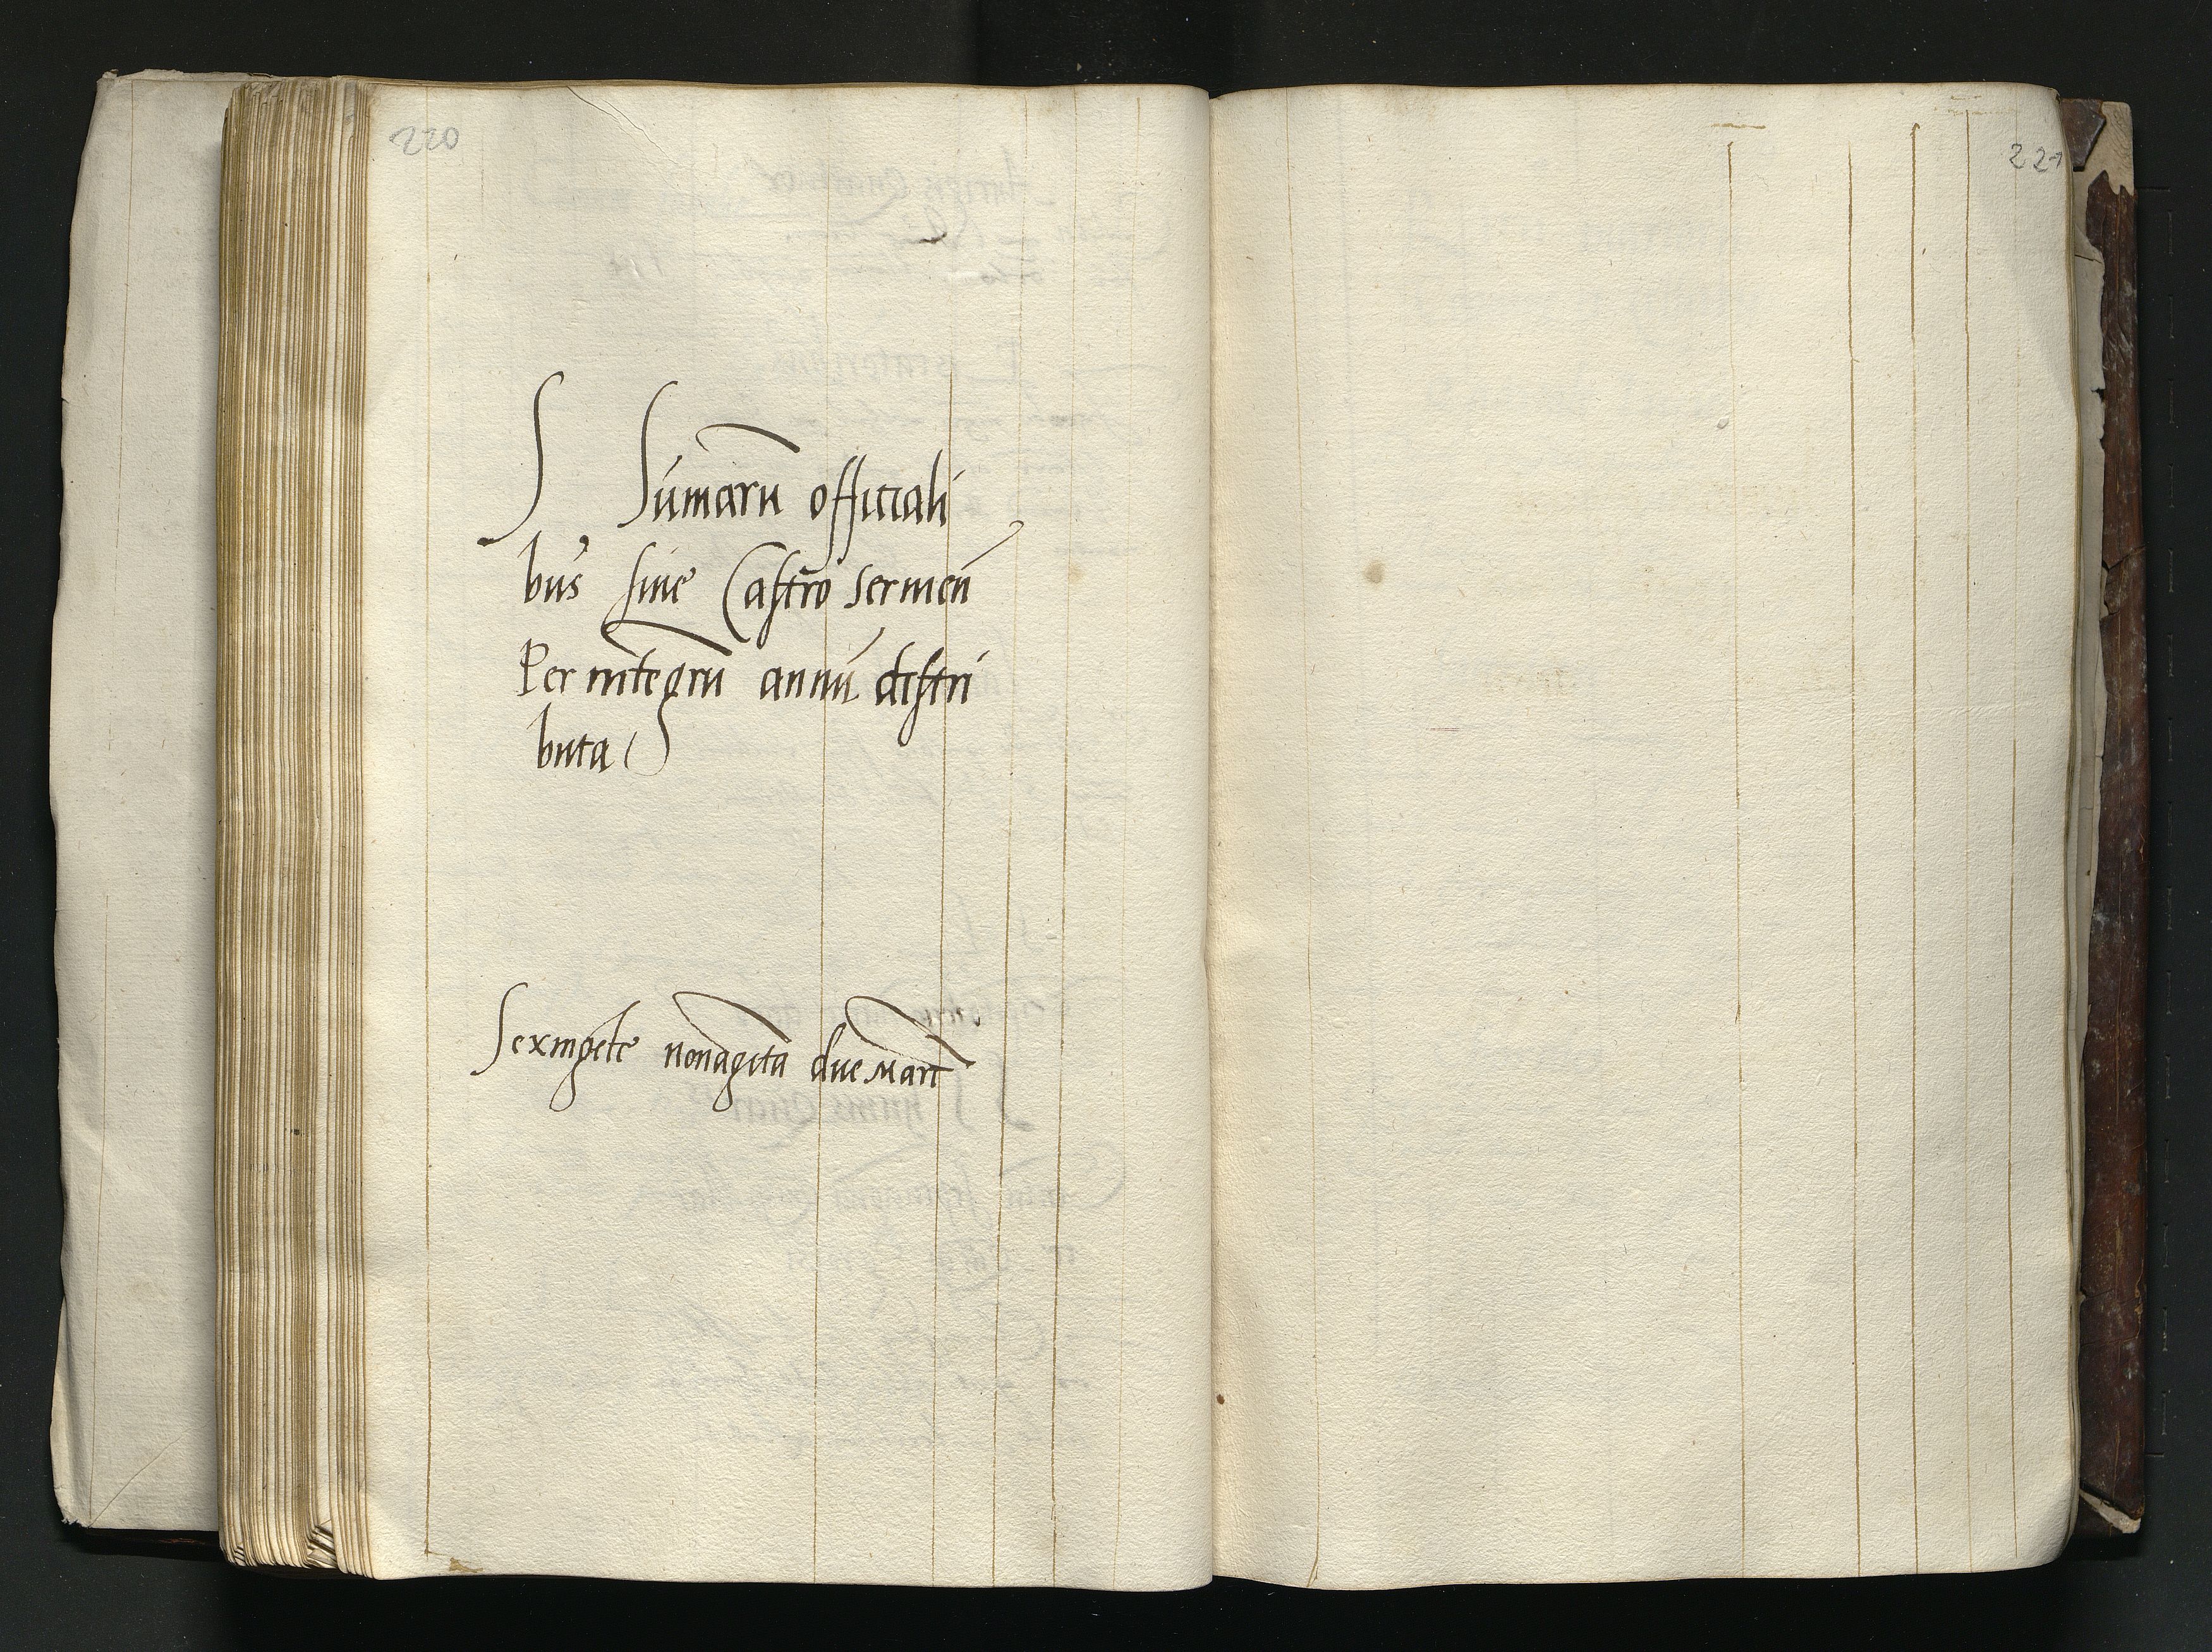 220
Sum̄aru officiali
bus siue Castro seruien
Per integru annu distri
buta
Sexingēte nonagīta due marc
221